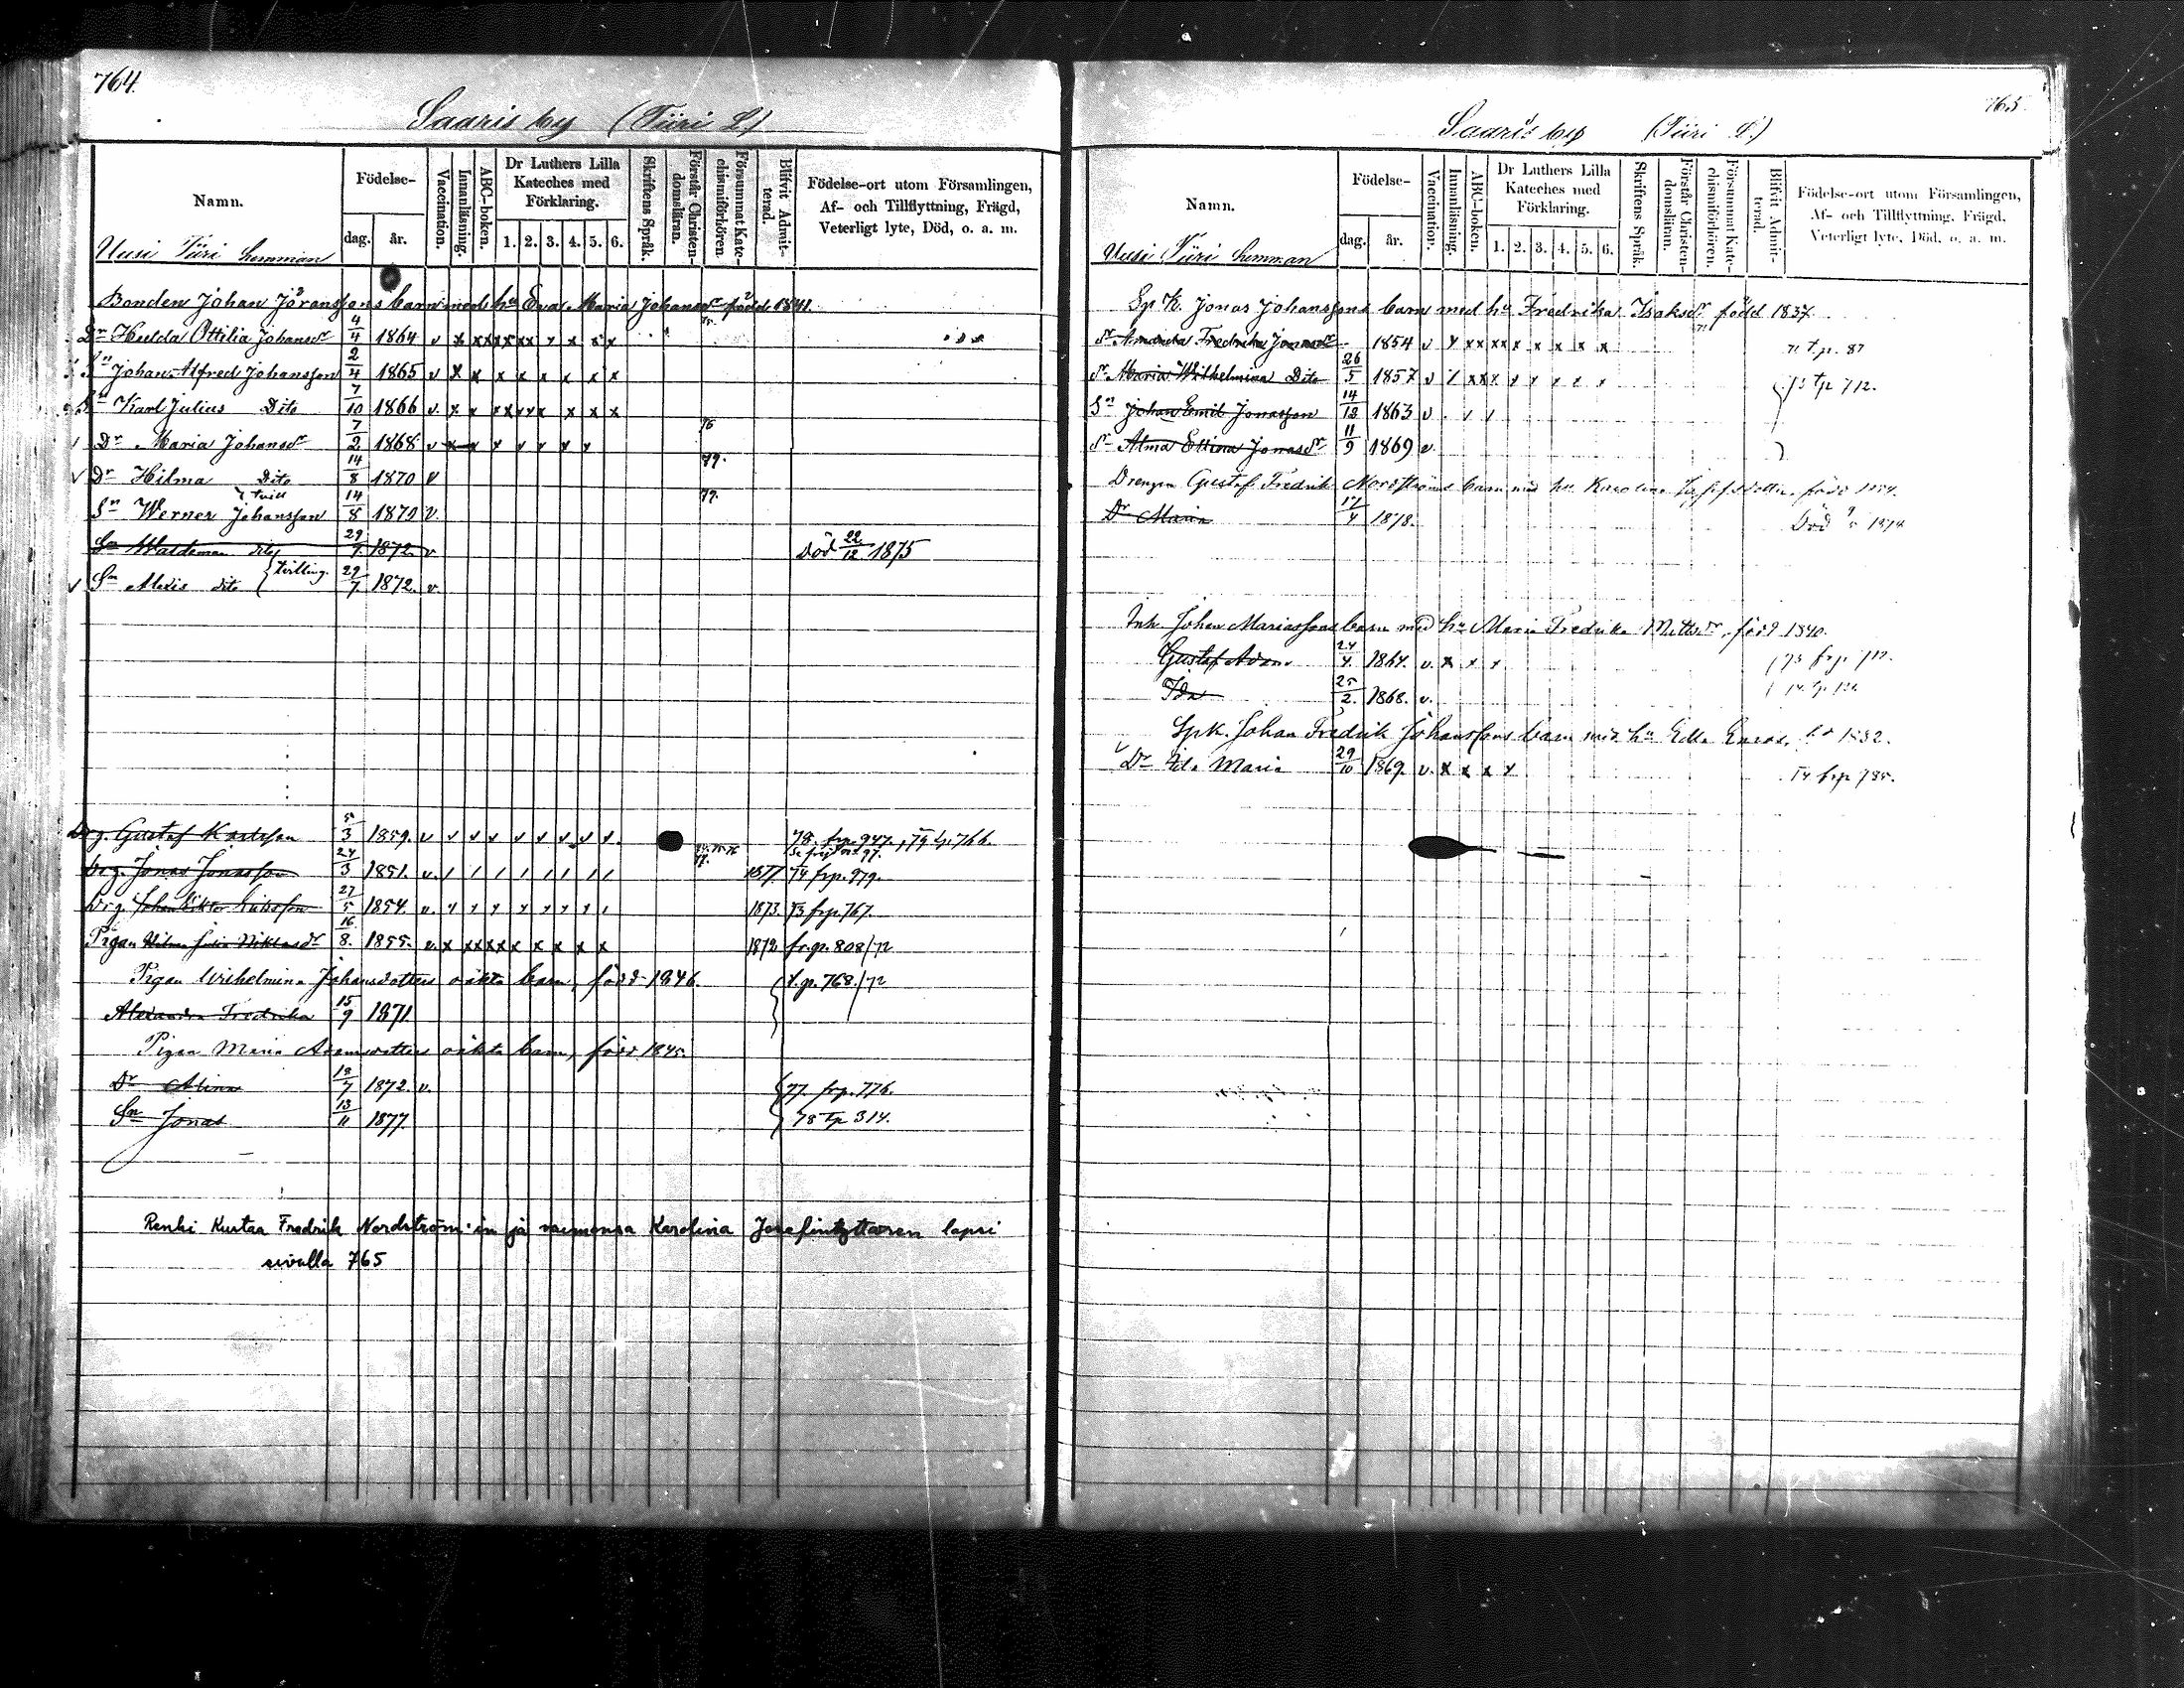 764.
Saaris by (Tiiri L.)
Namn.
Födelse-
dag. år.
Vaccination.
Innanläsning.
ABC-boken.
Dr Luthers Lilla Kateches med Förklaring.
1. 2. 3. 4. 5. 6.
Skriftens Språk.
Förstår Christendomsläran.
Försummat Katechismiförhören.
Blifvit Admitterad.
Födelse-ort utom Församlingen, Af- och Tillflyttning, Frägd, Veterligt lyte, Död, o. a. m.
Uusi Tiiri hemman
Bonden Johan Jöranssons barn med hu Eva Maria Johansdr född 1841.
Dr Hulda Ottilia Johansdr 4/4 1864 v x x x x x x x x x x
Sn Johan Alfred Johansson 2/4 1865 v x x x x x x x x
Sn Karl Julius Dito 7/10 1866 v. x x x x v x x x x
Dr Maria Johansdr 7/2 1868 v x x x v v x x x 76
Dr Hilma Dito 14/8 1870 v 79.
Sn Werner Johansson 14/8 1870 v. 77.
Sn Waldemar dito 29/7 1872. v. död 22/12 1875
Sn Alexis dito tvilling. 29/7 1872. v.
Drg. Gustaf Karlsson 5/3 1859. v v v v v v v v v v 78. frp. 947., 79 tp. 766.
Drg. Jonas Jonasson 24/3 1851. v. / / / / / / / / / 1877 74 frp. 979.
Drg. Johan Viktor Eriksson 27/5 1854. v. 1873. 73 frp. 767.
Pigan Wilma Niklasdr 16/8. 1855. v. x x x x x x x x x x 1872 fr.p. 808/72
Pigan Wilhelmina Johansdotters oäkta barn, född 1846. t.p. 768./72
Alexandra Fredrika 15/9 1871.
Pigan Maria Adamsdotters oäkta barn, född 1845.
Dr Alina 18/7 1872. v. 77. frp. 776.
Sn Jonas 13/11 1877. 78 tp 314.
Renki Kustaa Fredrik Nordström:in ja vaimonsa Karolina Josefintyttären lapsi
sivulla 765
765
Saaris by (Tiiri L.)
Namn.
Födelse-
dag. år.
Vaccination.
Innanläsning.
ABC-boken.
Dr Luthers Lilla Kateches med Förklaring.
1. 2. 3. 4. 5. 6.
Skriftens Språk.
Förstår Christendomsläran.
Försummat Katechismiförhören.
Blifvit Admitterad.
Födelse-ort utom Församlingen, Af- och Tillflyttning, Frägd, Veterligt lyte, Död, o. a. m.
Uusi Tiiri hemman
Sp K. Jonas Johanssons barn med hu Fredrika Isaksdr född 1837.
Dr Amanda Fredrika Jonasdr 1854 v x x x x x x x x x x
Dr Maria Wilhelmina Dito 26/5 1857 v 73 tp 712.
Sn Johan Emil Jonasson 14/12 1863 v
Dr Alma Jonasdr 11/9 1869 v.
Drengen Gustaf Fredrik Nordströms barn med hu Karolina Josefsdotter, född
Dr Maria 17/4 1878. Död
Inh. Johan Mariassons barn med hu Maria Fredrika Mattsdr, född 1840.
Gustaf Adam 24/4 1864. v. x x x 73 frp. 712.
Ida 25/2. 1868. v.
Spk. Johan Fredrik Johanssons barn med hu Edla 1832.
Dr Ida Maria 29/10 1869. v. x x x x 74 frp 785.